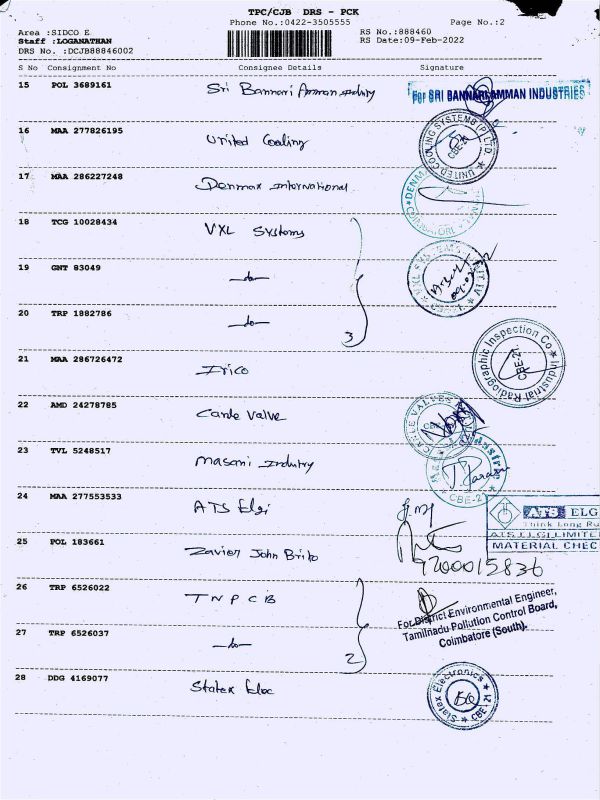 TPC/CJB DRS - PCK
Phone No.:0422-3505555 Page No.:2
Area :SIDCO E RS No.:888460
Staff :LOGANATHAN RS Date:09-Feb-2022
DRS No. :DCJB88846002
S No Consignment No Consignee Details Signature
15 POL 3689161 Sri Bannari Amman industry For SRI BANNARI AMMAN INDUSTRIES
16 MAA 277826195 United Cooling UNITED COOLING SYSTEMS (P) LTD. CBE-21
17 MAA 286227248 Denmax International
18 TCG 10028434 VXL Systems
19 GNT 83049 —do— VXL SYSTEMS
20 TRP 1882786 —do— 3
21 MAA 286726472 Irico Industrial Radiographic Inspection Co CBE-21.
22 AMD 24278785 Carle Valve CARLE VALVES
23 TVL 5248517 Masani Industry CBE-21
24 MAA 277553533 ATS Elgi
ATS ELG
Think Long Ru
ATS ELGI LIMITE
MATERIAL CHEC
25 POL 183661 Zavier John Brito 9200015836
26 TRP 6526022 TNPCB
For District Environmental Engineer,
Tamilnadu Pollution Control Board,
Coimbatore (South).
27 TRP 6526037 —do— 2
28 DDG 4169077 Statex Elec Statex Electronics CBE-21